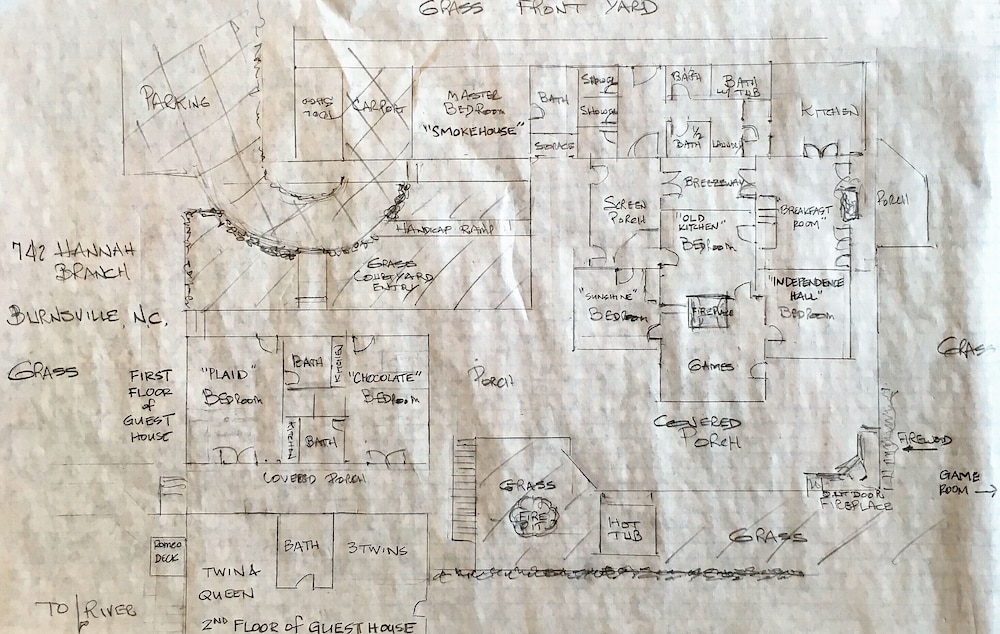 GRASS FRONT YARD
PARKING
TOOL
SHED
CARPORT
MASTER
BEDROOM
"SMOKEHOUSE"
BATH
STORAGE
SHOWER
SHOWER
BATH
BATH
W/ TUB
1/2
BATH
LAUNDRY
KITCHEN
BREEZEWAY
SCREEN
PORCH
"OLD
KITCHEN"
BEDROOM
"BREAKFAST
ROOM"
PORCH
HANDICAP RAMP
GRASS
COURTYARD
ENTRY
742 HANNAH
BRANCH
BURNSVILLE, N.C.
GRASS
"SUNSHINE"
BEDROOM
FIREPLACE
"INDEPENDENCE
HALL"
BEDROOM
GAMES
GRASS
FIRST
FLOOR
of
GUEST
HOUSE
"PLAID"
BEDROOM
BATH
KITCHEN
"CHOCOLATE"
BEDROOM
KITCHEN
BATH
PORCH
COVERED
PORCH
COVERED PORCH
FIREWOOD
GAME
ROOM →
OUTDOOR
FIREPLACE
GRASS
FIRE
PIT
HOT
TUB
GRASS
ROMEO
DECK
BATH
3 TWINS
TWIN &
QUEEN
2ND FLOOR of GUEST HOUSE
TO RIVER